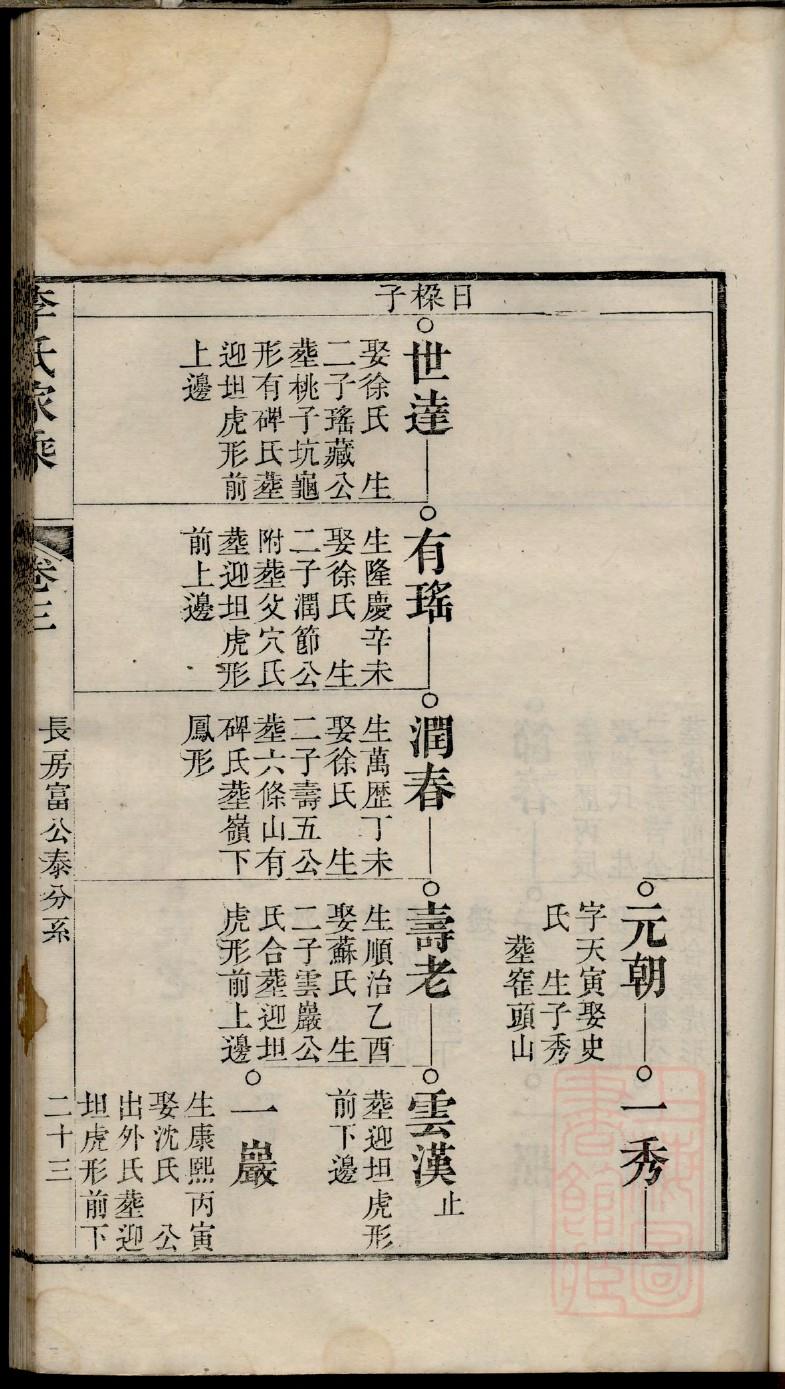 元朝
字天寅娶史
氏　生子秀
葬窑頭山
一秀
日樑子
世達
娶徐氏　生
二子瑤藏公
葬桃子坑龜
形有碑氏葬
迎坦虎形前
上邊
有瑤
生隆慶辛未
娶徐氏　生
二子潤節公
附葬父穴氏
葬迎坦虎形
前上邊
潤春
生萬歷丁未
娶徐氏　生
二子壽五公
葬六條山有
碑氏葬嶺下
鳳形
壽老
生順治乙酉
娶蘇氏　生
二子雲巖公
氏合葬迎坦
虎形前上邊
雲漢
止
葬迎坦虎形
前下邊
一巖
生康熙丙寅
娶沈氏　公
出外氏葬迎
坦虎形前下
李氏家乘
卷三
長房富公泰分系
二十三